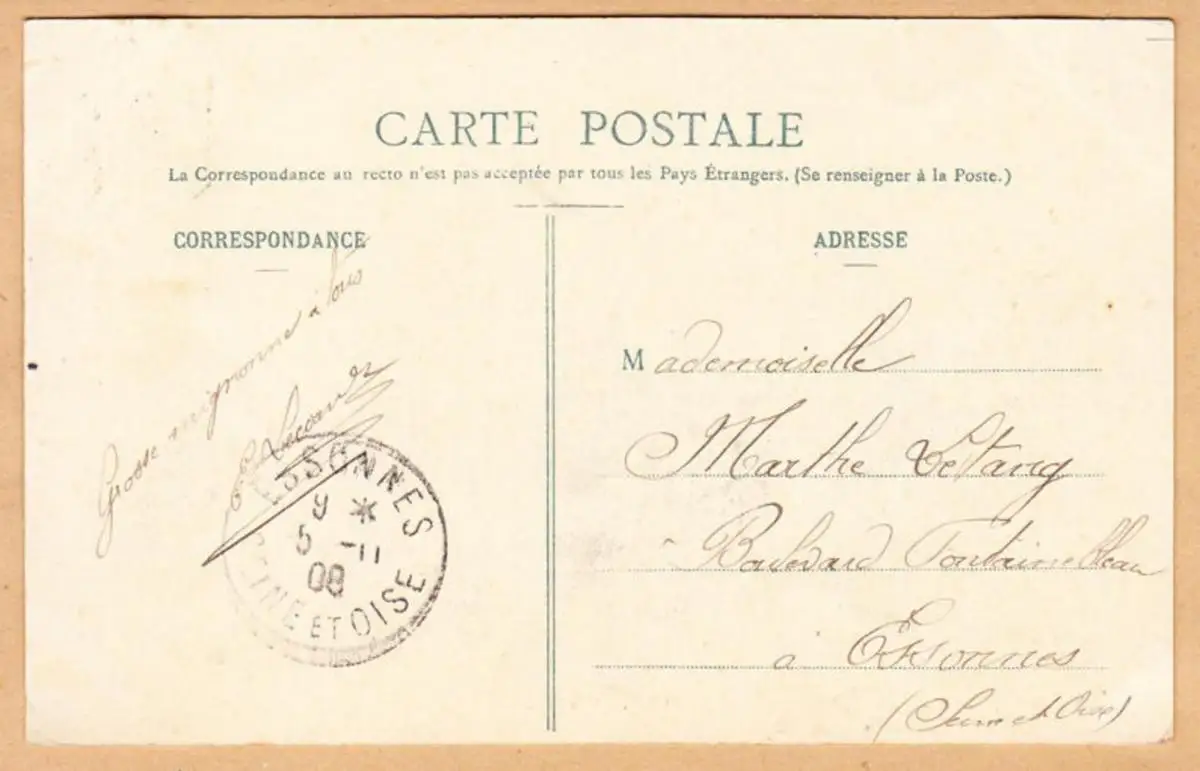 CARTE POSTALE
La Correspondance au recto n'est pas acceptée par tous les Pays Étrangers. (Se renseigner à la Poste.)
CORRESPONDANCE
Grosse mignonne à tous
ESSONNES
9 *
5 -11
08
SEINE ET OISE
ADRESSE
Mademoiselle
Marthe Letang
Boulevard Fontainebleau
a Essonnes
(Seine et Oise)